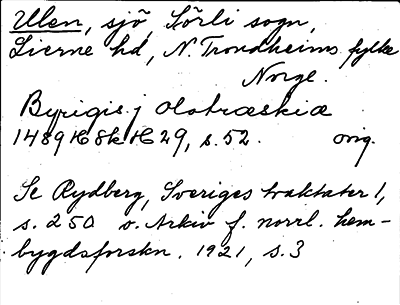 Ulen, sjö, Sörli sogn,
Lierne hd, N. Trondheims fylke
Norge.
Byrigis j olotræskiæ
1489 HSH H 29, s. 52. orig.
Se Rydberg, Sveriges traktater 1,
s. 250 o. Arkiv f. norrl. hem-
bygdsforskn. 1921, s. 3